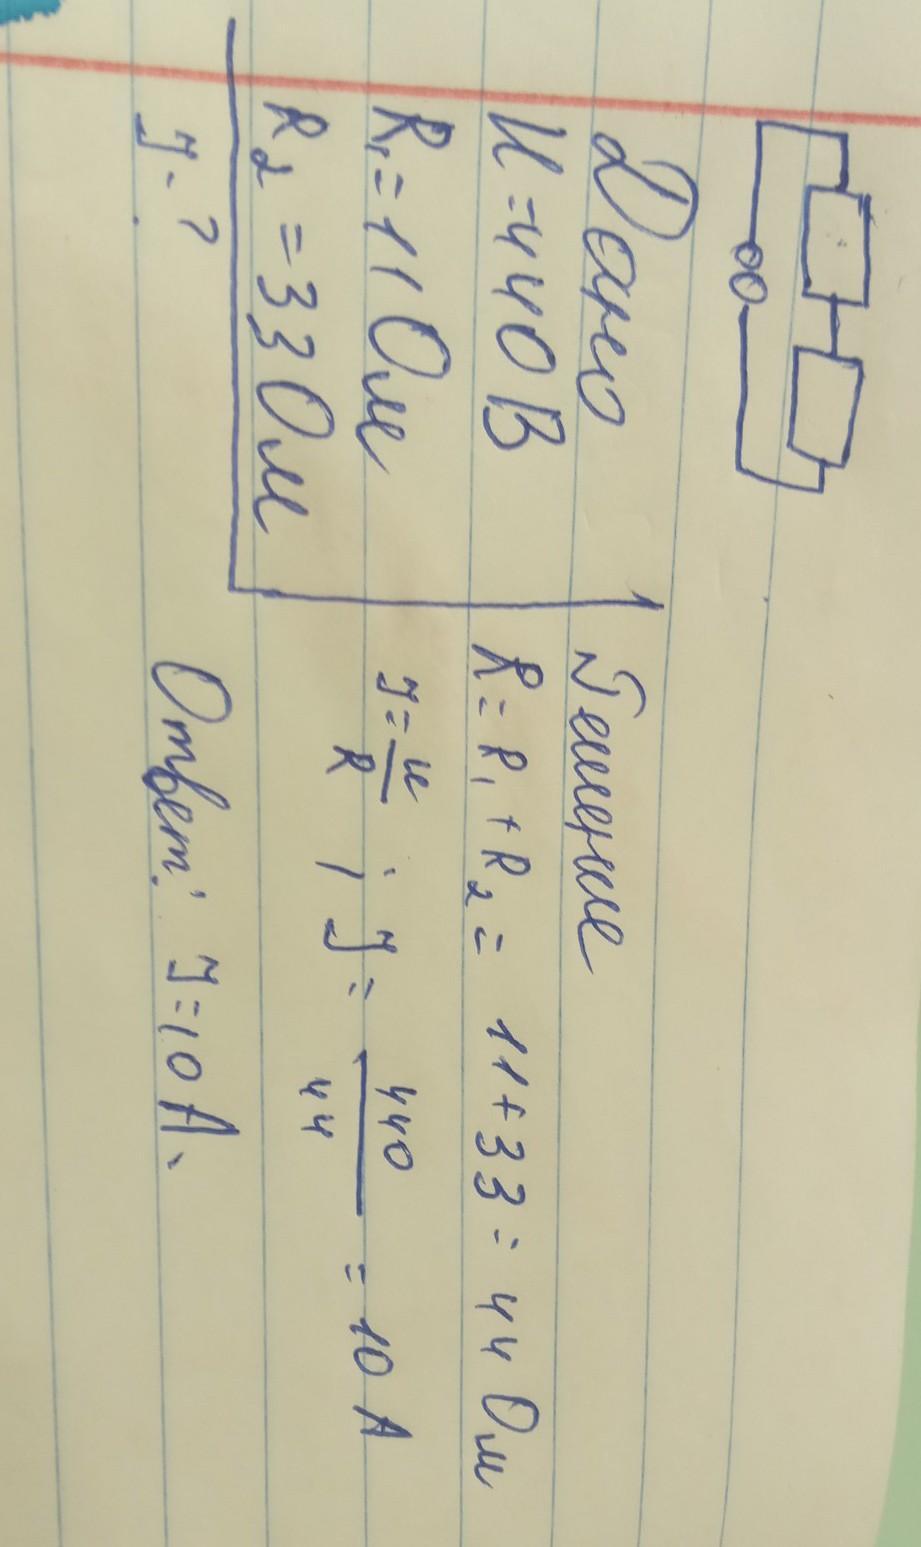 Дано
U=440В
R₁=11 Ом
R₂=33 Ом
I-?
Решение
R=R₁+R₂= 11+33=44 Ом
I=U/R ; I= 440/44 =10 А
Ответ: I=10 А.